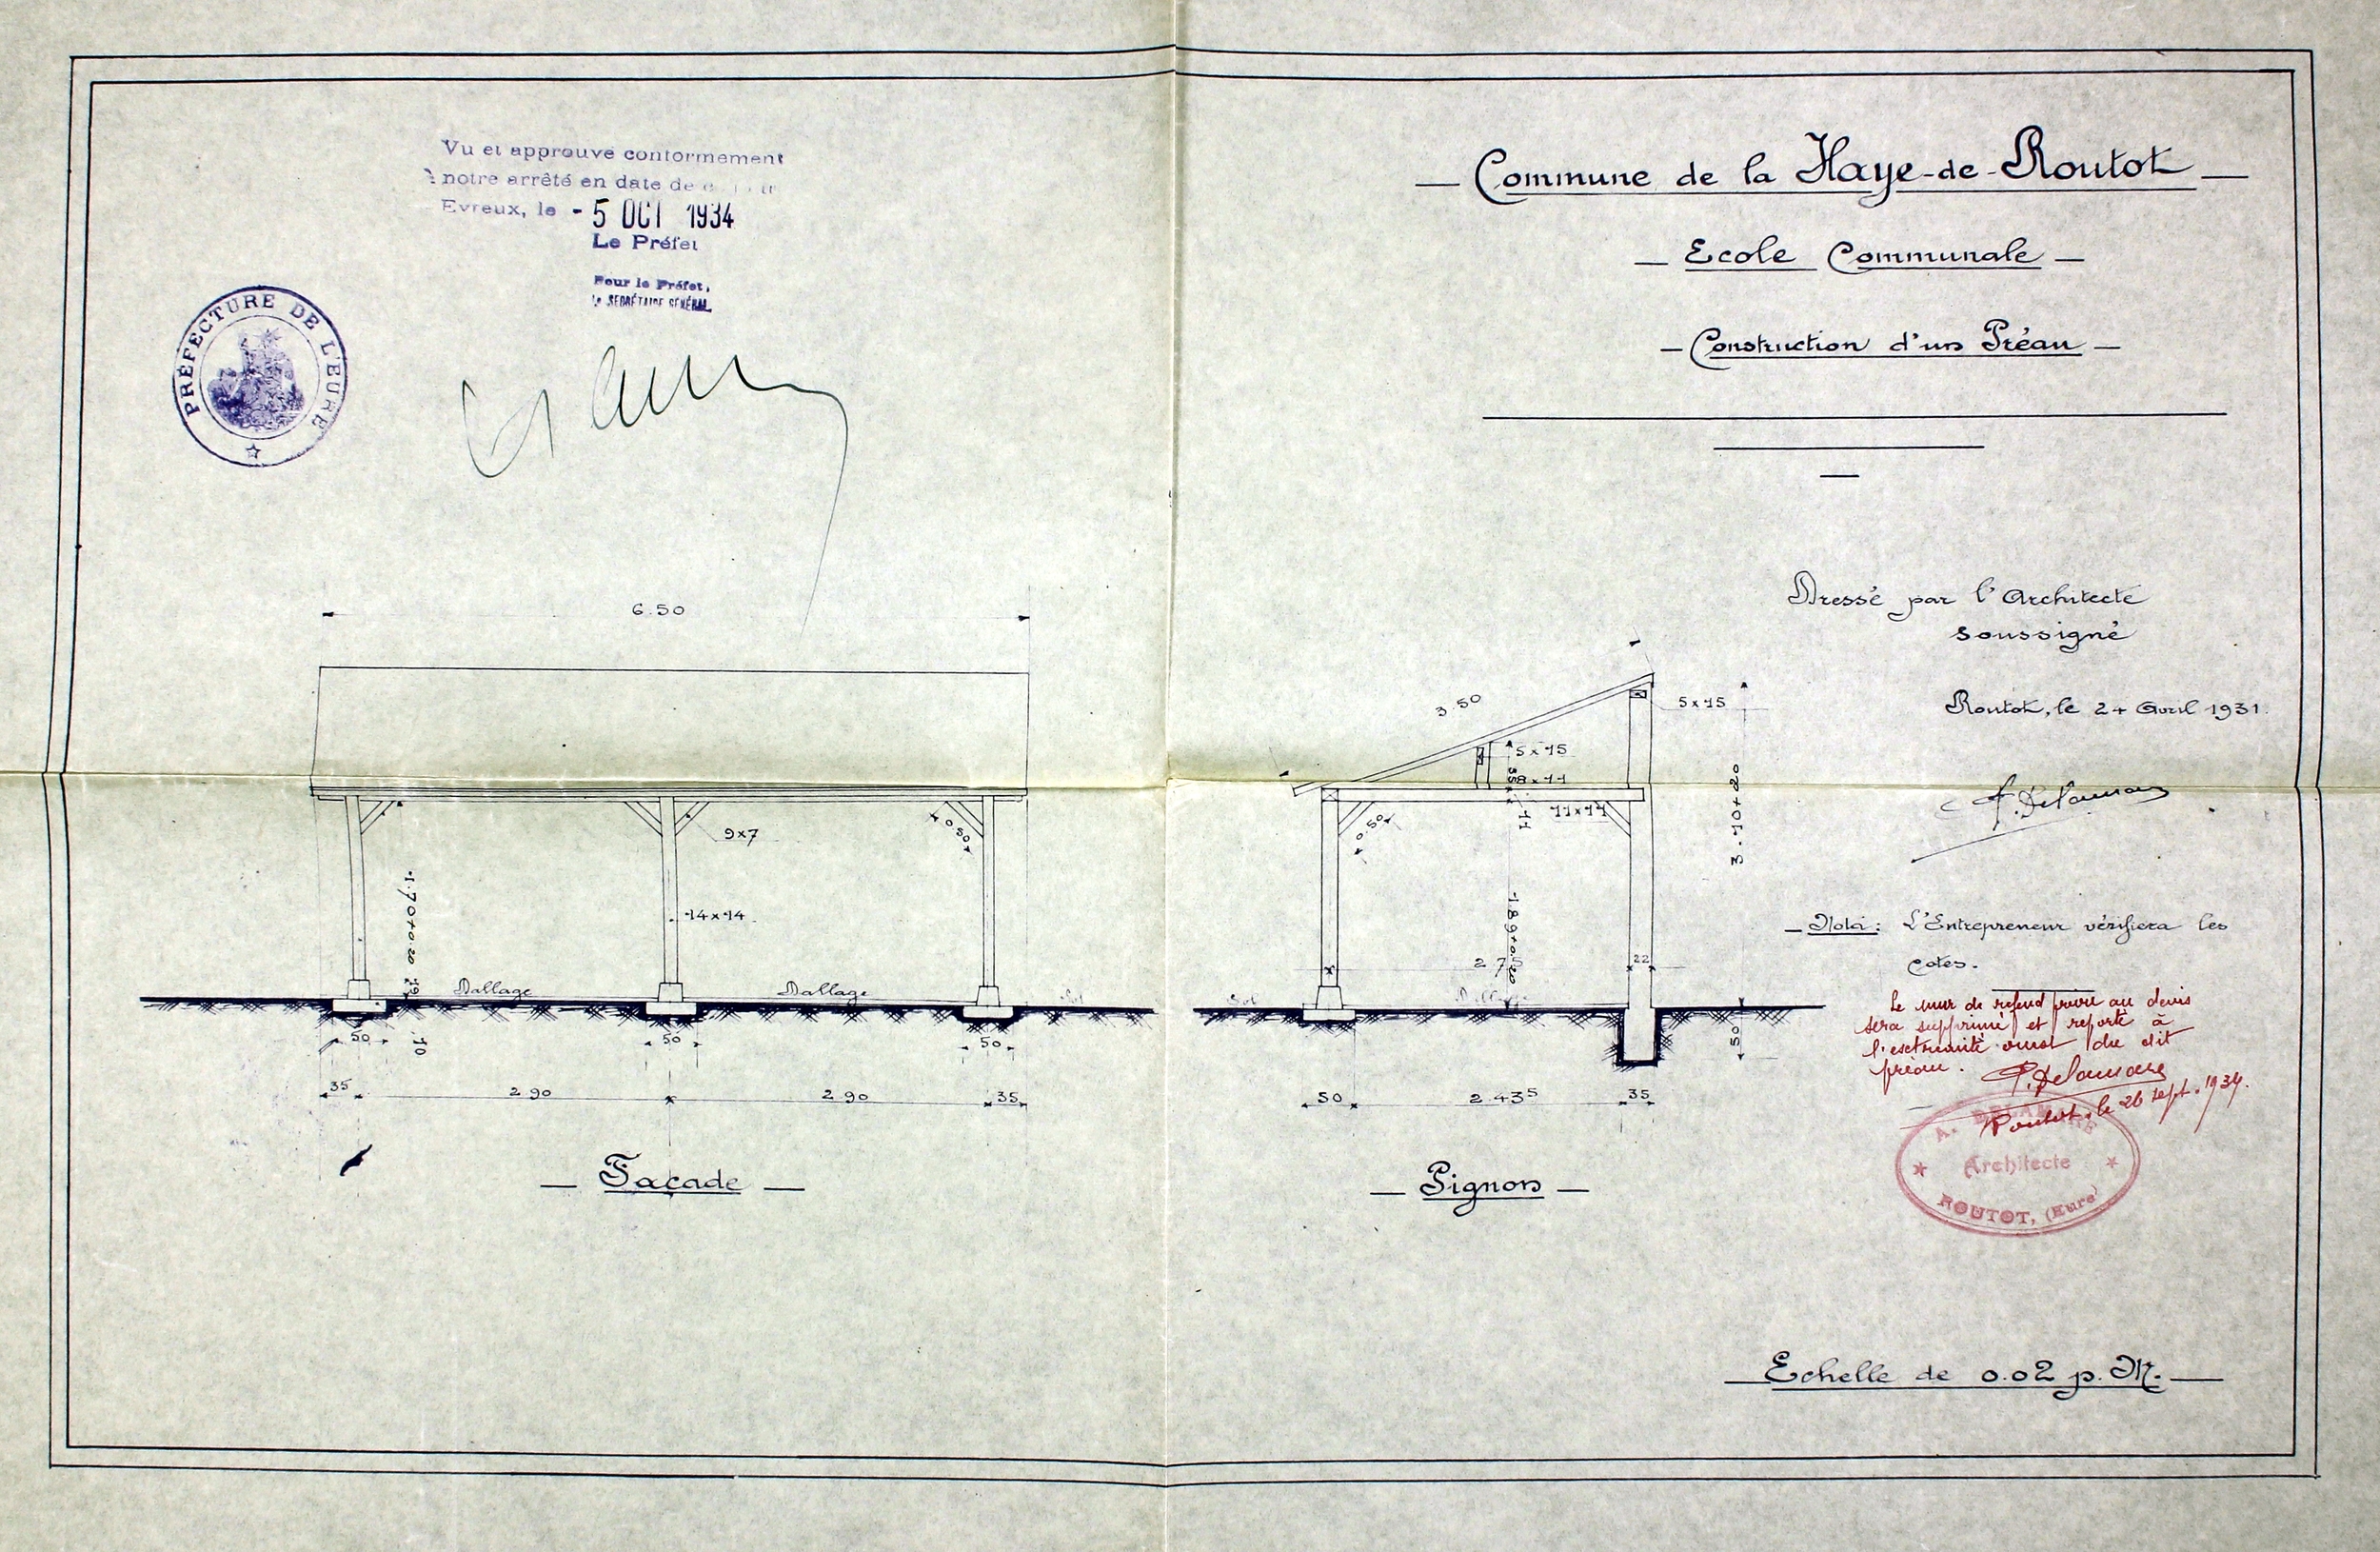 Vu et approuvé conformément
à notre arrêté en date de
Evreux, le - 5 OCT 1934
Le Préfet
Pour le Préfet,
Le SECRÉTAIRE GÉNÉRAL
PRÉFECTURE DE L'EURE
— Commune de la Haye-de-Routot —
— Ecole Communale —
— Construction d'un Préau —
Dressé par l'Architecte
soussigné
Routot, le 24 Avril 1931.
A. Delamare
— Nota: L'Entrepreneur vérifiera les
cotes.
Le mur de refend prévu au devis
sera supprimé et reporté à
l'extrémité ouest du dit
préau.
A. Delamare
Routot, le 26 sept. 1934.
A. DELAMARE
Architecte
ROUTOT, (Eure)
6.50
9x7
0.50
14x14
1.70+0.20
19
Dallage
Dallage
Sol
50
10
50
50
35
2 90
2 90
35
— Façade —
3.50
5x15
5x15
35
8x11
11
11x11
0.50
3.10+20
1.89+0.20
2 75
22
Sol
Dallage
50
50
2 43⁵
35
— Pignon —
— Echelle de 0.02 p. M. —